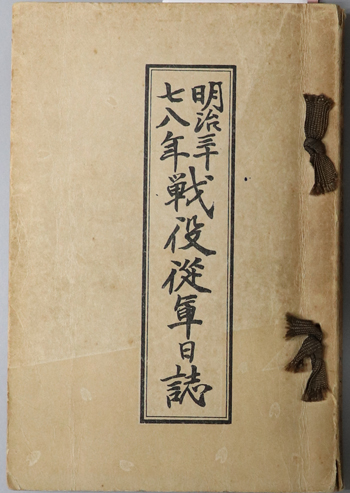 明治三十
七八年戦役従軍日誌